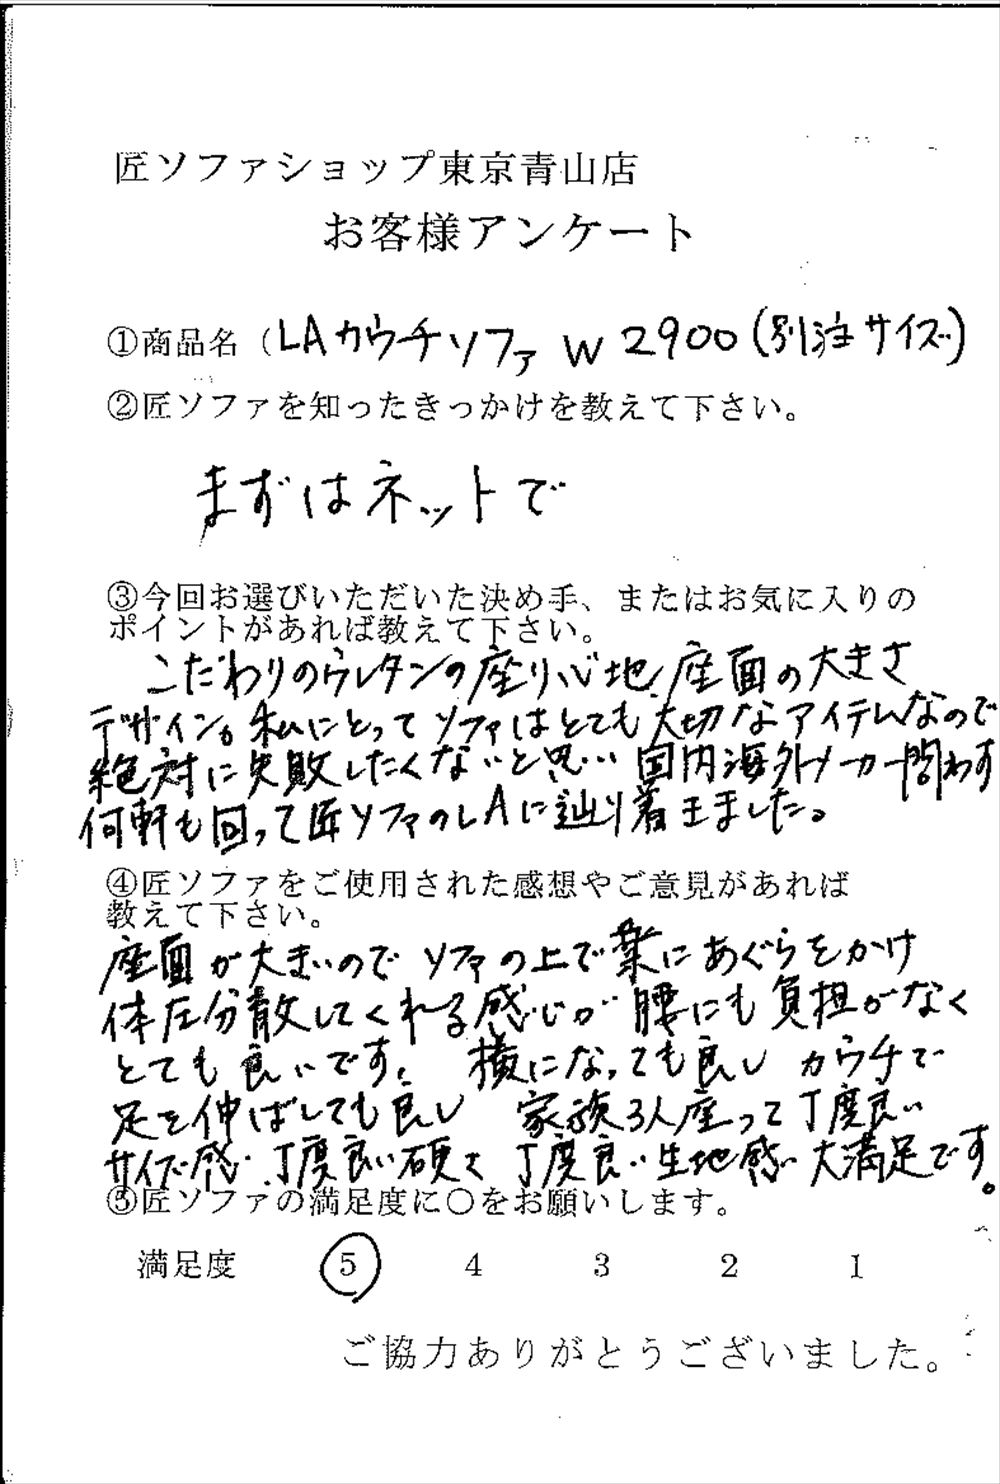 匠ソファショップ東京青山店
お客様アンケート
①商品名（LAカウチソファ W2900(別注サイズ)
②匠ソファを知ったきっかけを教えて下さい。
まずはネットで
③今回お選びいただいた決め手、またはお気に入りの
ポイントがあれば教えて下さい。
こだわりのウレタンの座り心地 座面の大きさ
デザイン。私にとってソファはとても大切なアイテムなので
絶対に失敗したくないと思い 国内海外メーカー問わず
何軒も回って匠ソファのLAに辿り着きました。
④匠ソファをご使用された感想やご意見があれば
教えて下さい。
座面が大きいのでソファの上で楽にあぐらをかけ
体圧分散してくれる感じが腰にも負担がなく
とても良いです。 横になっても良し カウチで
足を伸ばしても良し 家族3人座って丁度良い
サイズ感 丁度良い硬さ 丁度良い生地感 大満足です。
⑤匠ソファの満足度に〇をお願いします。
満足度 5 4 3 2 1
ご協力ありがとうございました。